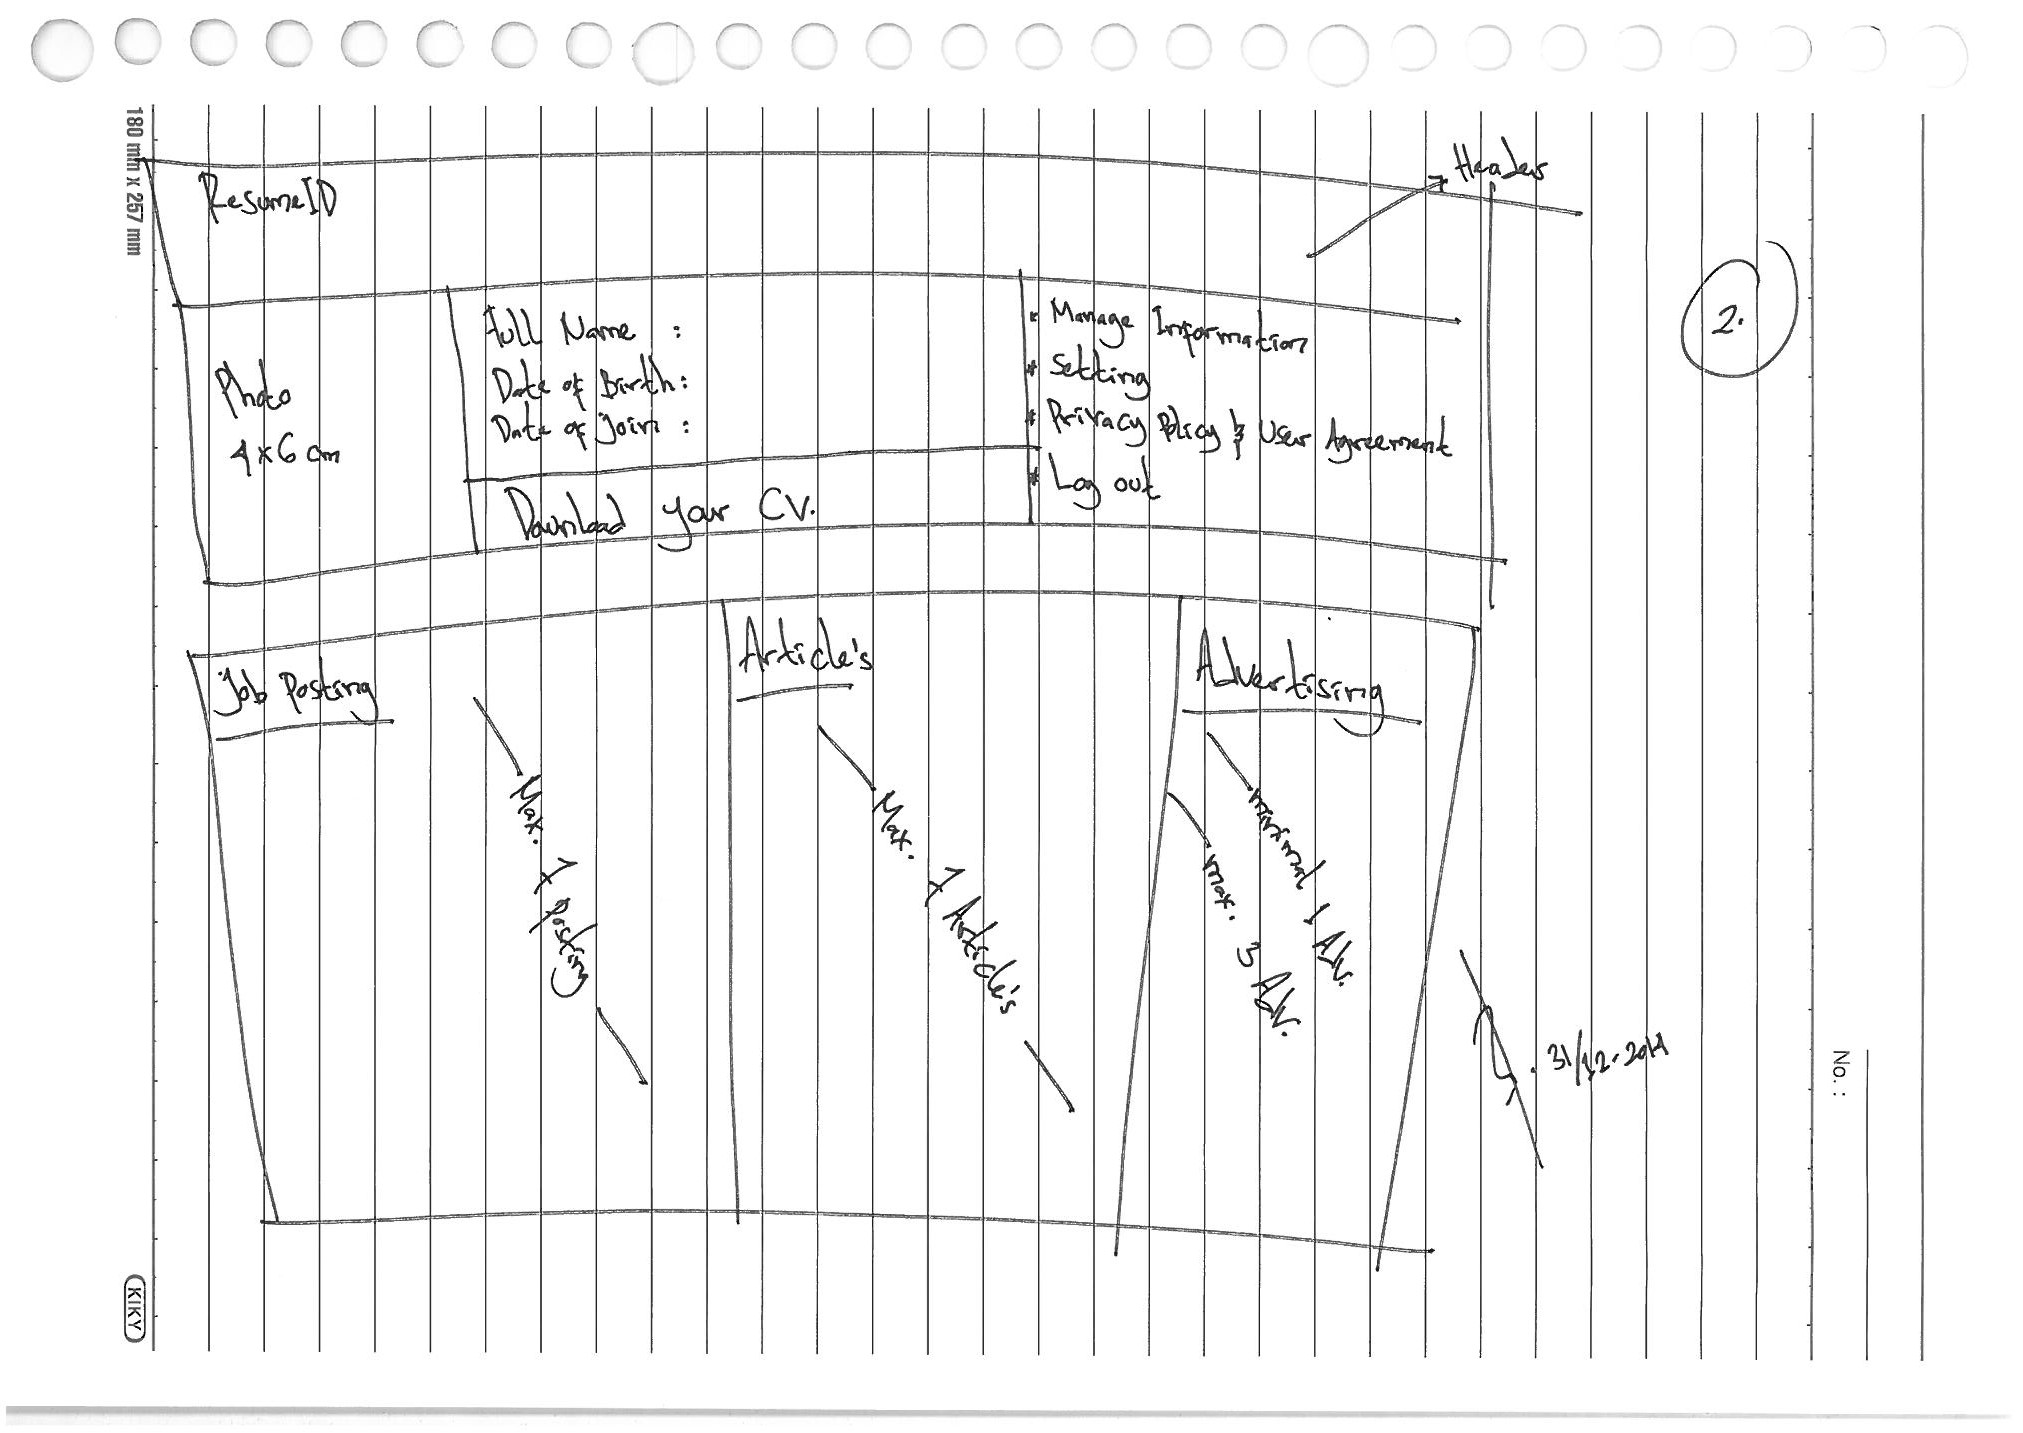 180 mm x 257 mm
Header
ResumeID
2.
Photo
4x6 cm
Full Name :
Date of Birth:
Date of join :
Download your CV.
* Manage Information
* Setting
* Privacy Policy & User Agreement
* Log out
Job Posting
Max. 7 posting
Article's
Max. 7 Article's
Advertising
minimal 1 Adv.
max. 3 Adv.
31/12-2014
No. :
KIKY